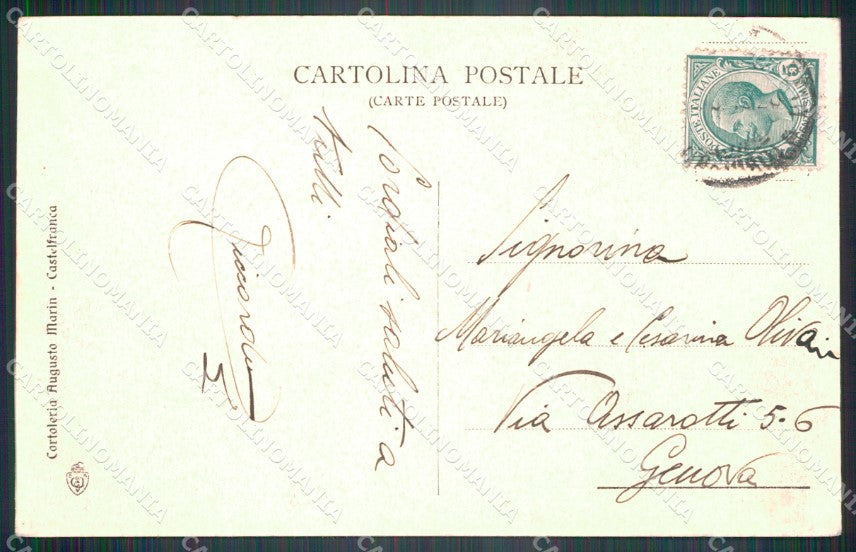 CARTOLINA POSTALE
(CARTE POSTALE)
POSTE ITALIANE
Cordiali saluti a
tutti
Signorina
Mariangela e Cesarina Olivari
Via Assarotti 5-6
Genova
Cartoleria Augusto Marin - Castelfranca
CARTOLINOMANIA